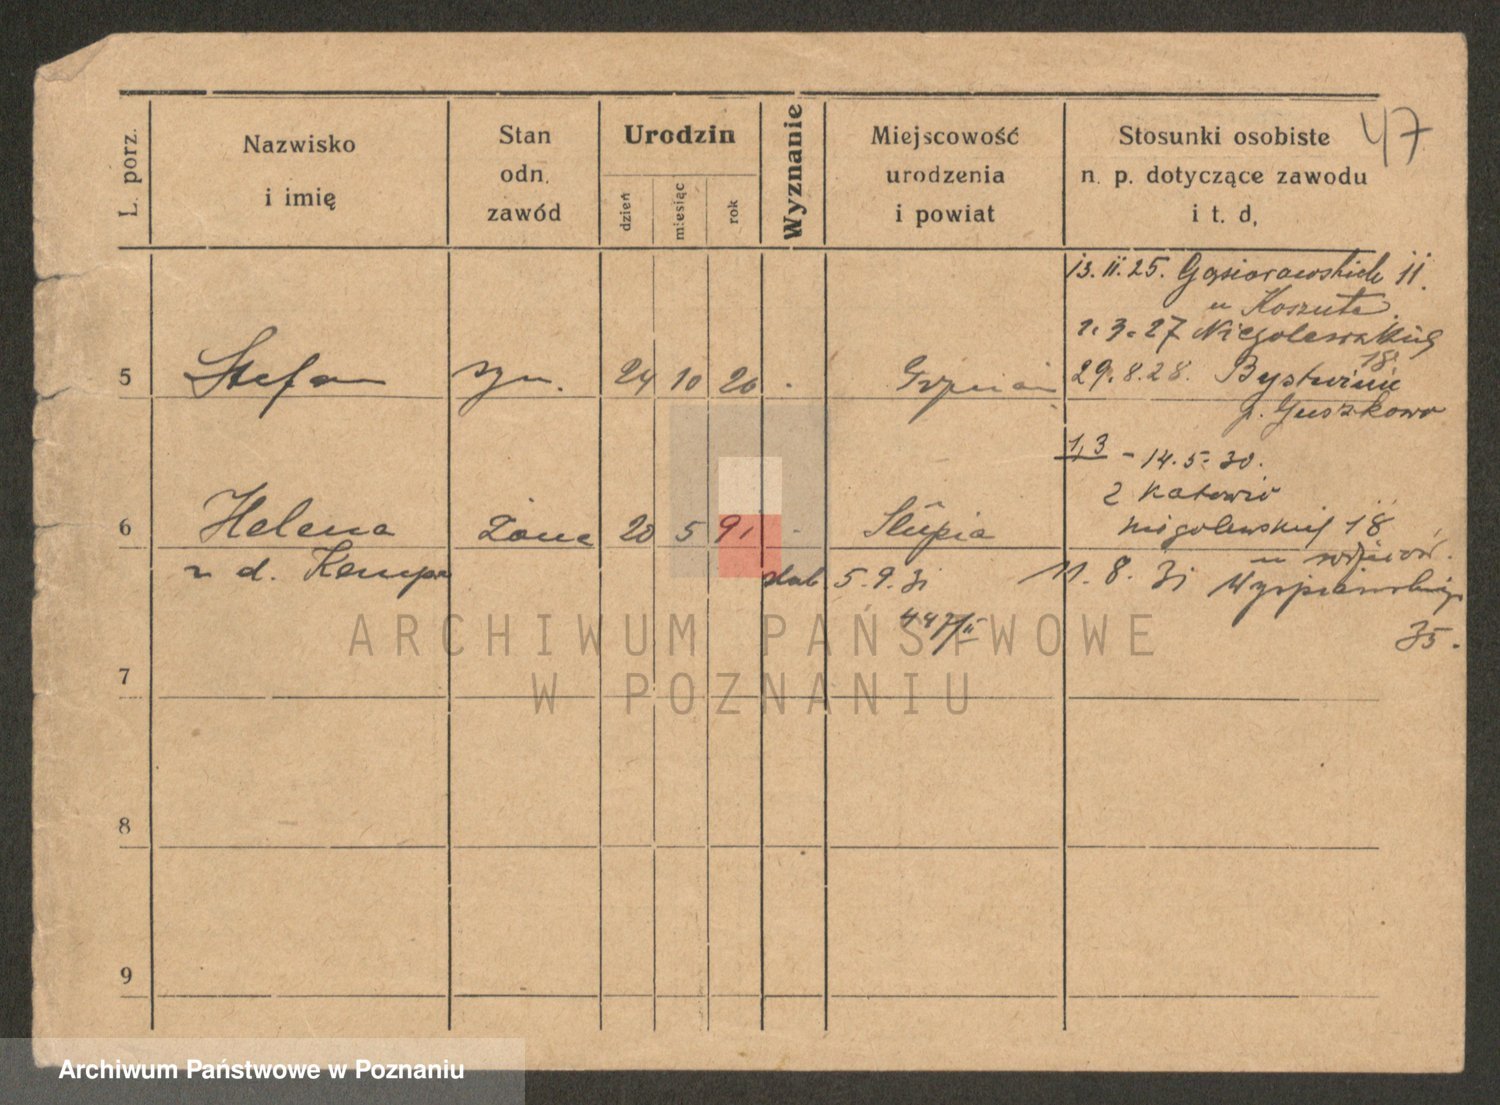 47
L. porz.
Nazwisko
i imię
Stan
odn.
zawód
Urodzin
dzień
miesiąc
rok
Wyznanie
Miejscowość
urodzenia
i powiat
Stosunki osobiste
n. p. dotyczące zawodu
i t. d.
13. 11. 25. Gąsiorowskich 11.
u Koszuta
1. 3. 27 Niegolewskich
18
5 Stefan syn. 24 10 20
29. 8. 28.
p. Guszkowo
1,3 - 14. 5. 30.
z Katowic
Niegolewskich 18
6 Helena żona 20 5 91 Słupia
z d. Kempa
ślub. 5. 9. 31
11. 8. 31 Wyspiańskiego
35.
447/II
7
8
9
ARCHIWUM PAŃSTWOWE
W POZNANIU
Archiwum Państwowe w Poznaniu